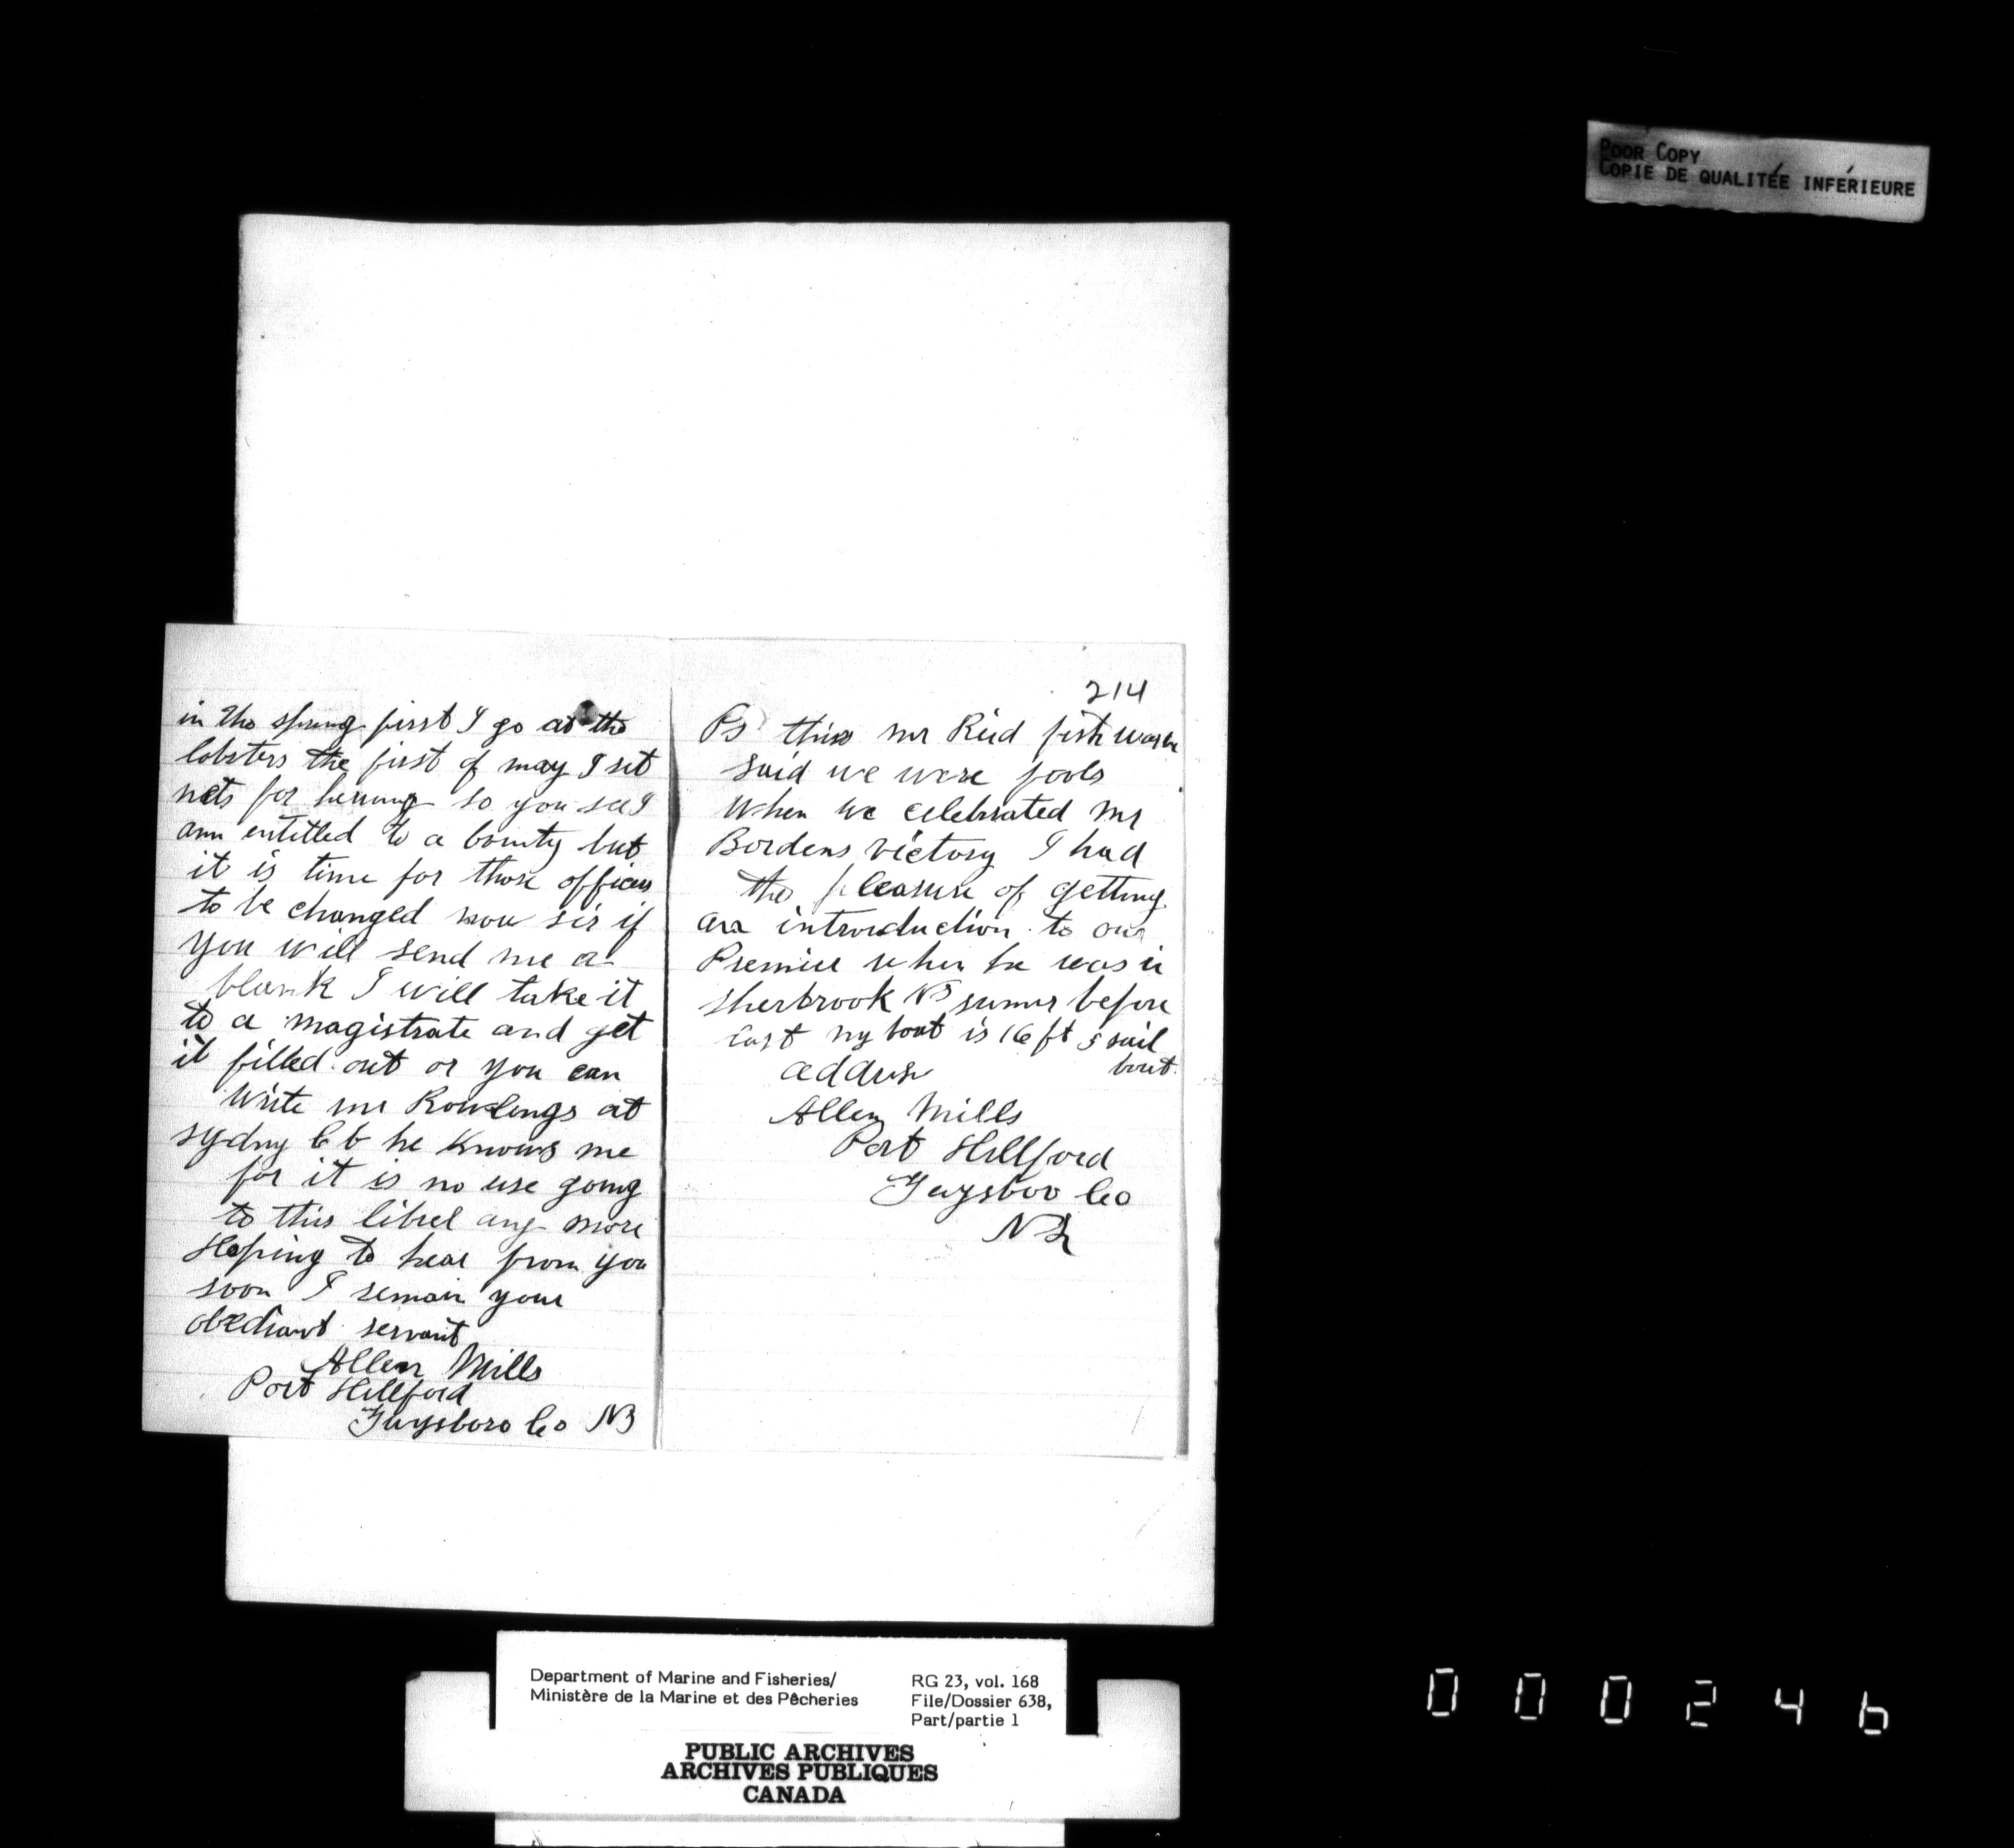 POOR COPY
COPIE DE QUALITÉE INFÉRIEURE
in the spring first I go at the
lobsters the first of may I set
nets for herring so you see I
am entitled to a bounty but
it is time for those officers
to be changed now sir if
you will send me a
blank I will take it
to a magistrate and get
it filled out or you can
write mr Rowlings at
sydny C b he knows me
for it is no use going
to this librel any more
Hoping to hear from you
soon I remain your
obediant servant
Allen Mills
Port Hillford
Guysboro Co NS
214
Ps this mr Reid fish
said we were fools
when we celebrated mr
Bordens victory I had
the pleasure of getting
an introduction to our
Premier when he was in
sherbrook NS sumer before
last my boat is 16 ft 5 sail
boat
address
Allen Mills
Port Hillford
Guysboo Co
NS
Department of Marine and Fisheries/
Ministère de la Marine et des Pêcheries
RG 23, vol. 168
File/Dossier 638,
Part/partie 1
PUBLIC ARCHIVES
ARCHIVES PUBLIQUES
CANADA
000246